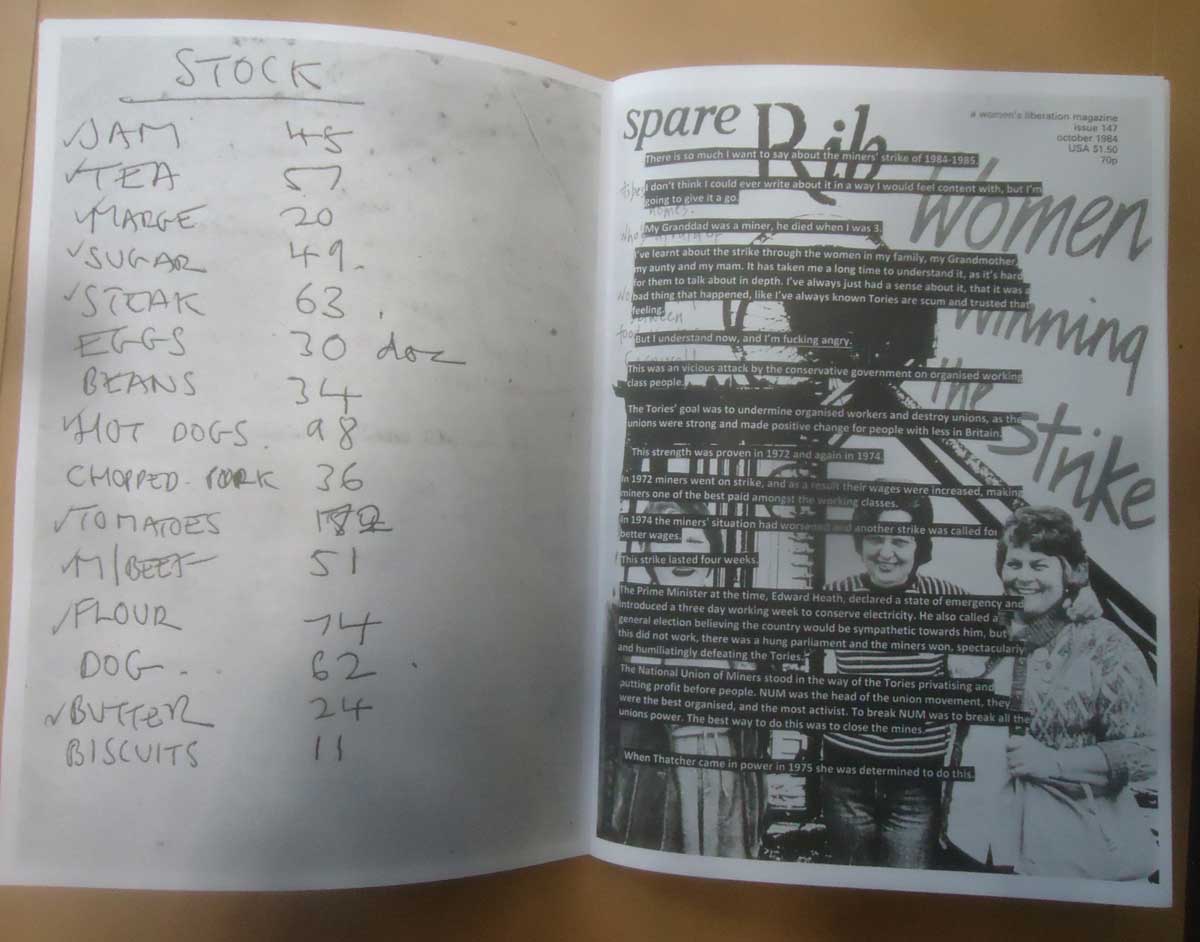 STOCK
✓JAM 45
✓TEA 57
✓MARGE 20
✓SUGAR 49.
✓STEAK 63.
EGGS 30 doz
BEANS 34
✓HOT DOGS 98
CHOPPED PORK 36
✓TOMATOES
✓M/BEEF 51
✓FLOUR 74
DOG 62
✓BUTTER 24
BISCUITS 11
spare Rib
a women's liberation magazine
issue 147
october 1984
USA $1.50
70p
Women
winning
the
strike
There is so much I want to say about the miners' strike of 1984-1985.
I don't think I could ever write about it in a way I would feel content with, but I'm
going to give it a go.
My Granddad was a miner, he died when I was 3.
I've learnt about the strike through the women in my family, my Grandmother,
my aunty and my mam. It has taken me a long time to understand it, as it's hard
for them to talk about in depth. I've always just had a sense about it, that it was a
bad thing that happened, like I've always known Tories are scum and trusted that
feeling.
But I understand now, and I'm fucking angry.
This was an vicious attack by the conservative government on organised working
class people.
The Tories' goal was to undermine organised workers and destroy unions, as the
unions were strong and made positive change for people with less in Britain.
This strength was proven in 1972 and again in 1974.
In 1972 miners went on strike, and as a result their wages were increased, making
miners one of the best paid amongst the working classes.
In 1974 the miners' situation had worsened and another strike was called for
better wages.
This strike lasted four weeks.
The Prime Minister at the time, Edward Heath, declared a state of emergency and
introduced a three day working week to conserve electricity. He also called a
general election believing the country would be sympathetic towards him, but
this did not work, there was a hung parliament and the miners won, spectacularly
and humiliatingly defeating the Tories.
The National Union of Miners stood in the way of the Tories privatising and
putting profit before people. NUM was the head of the union movement, they
were the best organised, and the most activist. To break NUM was to break all the
unions power. The best way to do this was to close the mines.
When Thatcher came in power in 1975 she was determined to do this.